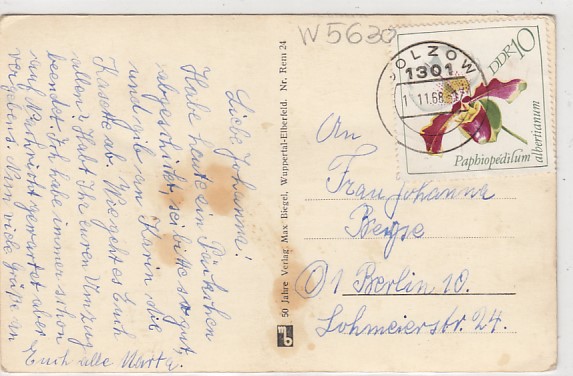 W5630
Liebe Johanna!
Habe heute ein Päckchen
abgeschickt, sei bitte so gut
und gib an Karin die
Kasette ab. Wie geht es Euch
allen? Habt Ihr euren Umzug
beendet. Ich habe immer schon
auf Nachricht gewartet aber
vergebens. Nun viele Grüße an
Euch alle Marta.
50 Jahre Verlag Max Biegel, Wuppertal-Elberfeld. Nr. Rem 24
GOLZOW
1301
11.68
DDR 10
Paphiopedilum
albertianum
An
Frau Johanna
Berge
01 Berlin 10.
Lohmeierstr. 24.